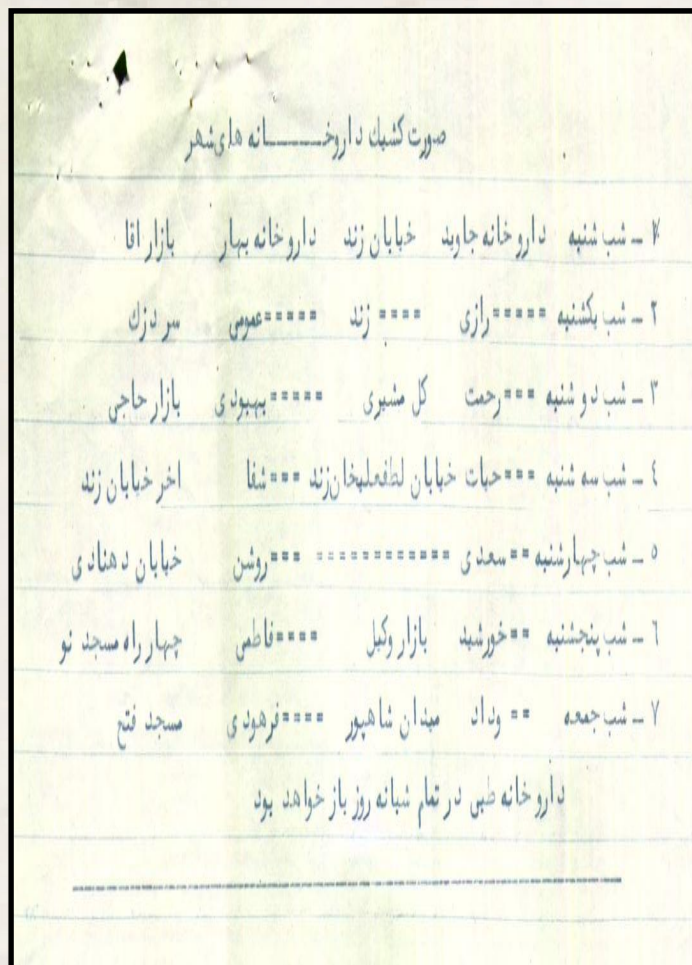 صورت کشیك داروخـــــانه های شهر
۱ ـ شب شنبه داروخانه جاوید خیابان زند داروخانه بهار بازار اقا
۲ ـ شب یکشنبه =====رازی ==== زند =====عمومی سر دزك
۳ ـ شب دو شنبه ===رحمت کل مشیری =====بهبودی بازار حاجی
٤ ـ شب سه شنبه ===حیات خیابان لطفعلیخان زند ===شفا اخر خیابان زند
۵ ـ شب چهارشنبه ==سعدی ============ ===روشن خیابان دهنادی
٦ ـ شب پنجشنبه ==خورشید بازار وکیل ====فاطمی چهار راه مسجد نو
۷ ـ شب جمعه == وداد میدان شاهپور ====فرهودی مسجد فتح
داروخانه طبی در تمام شبانه روز باز خواهد بود